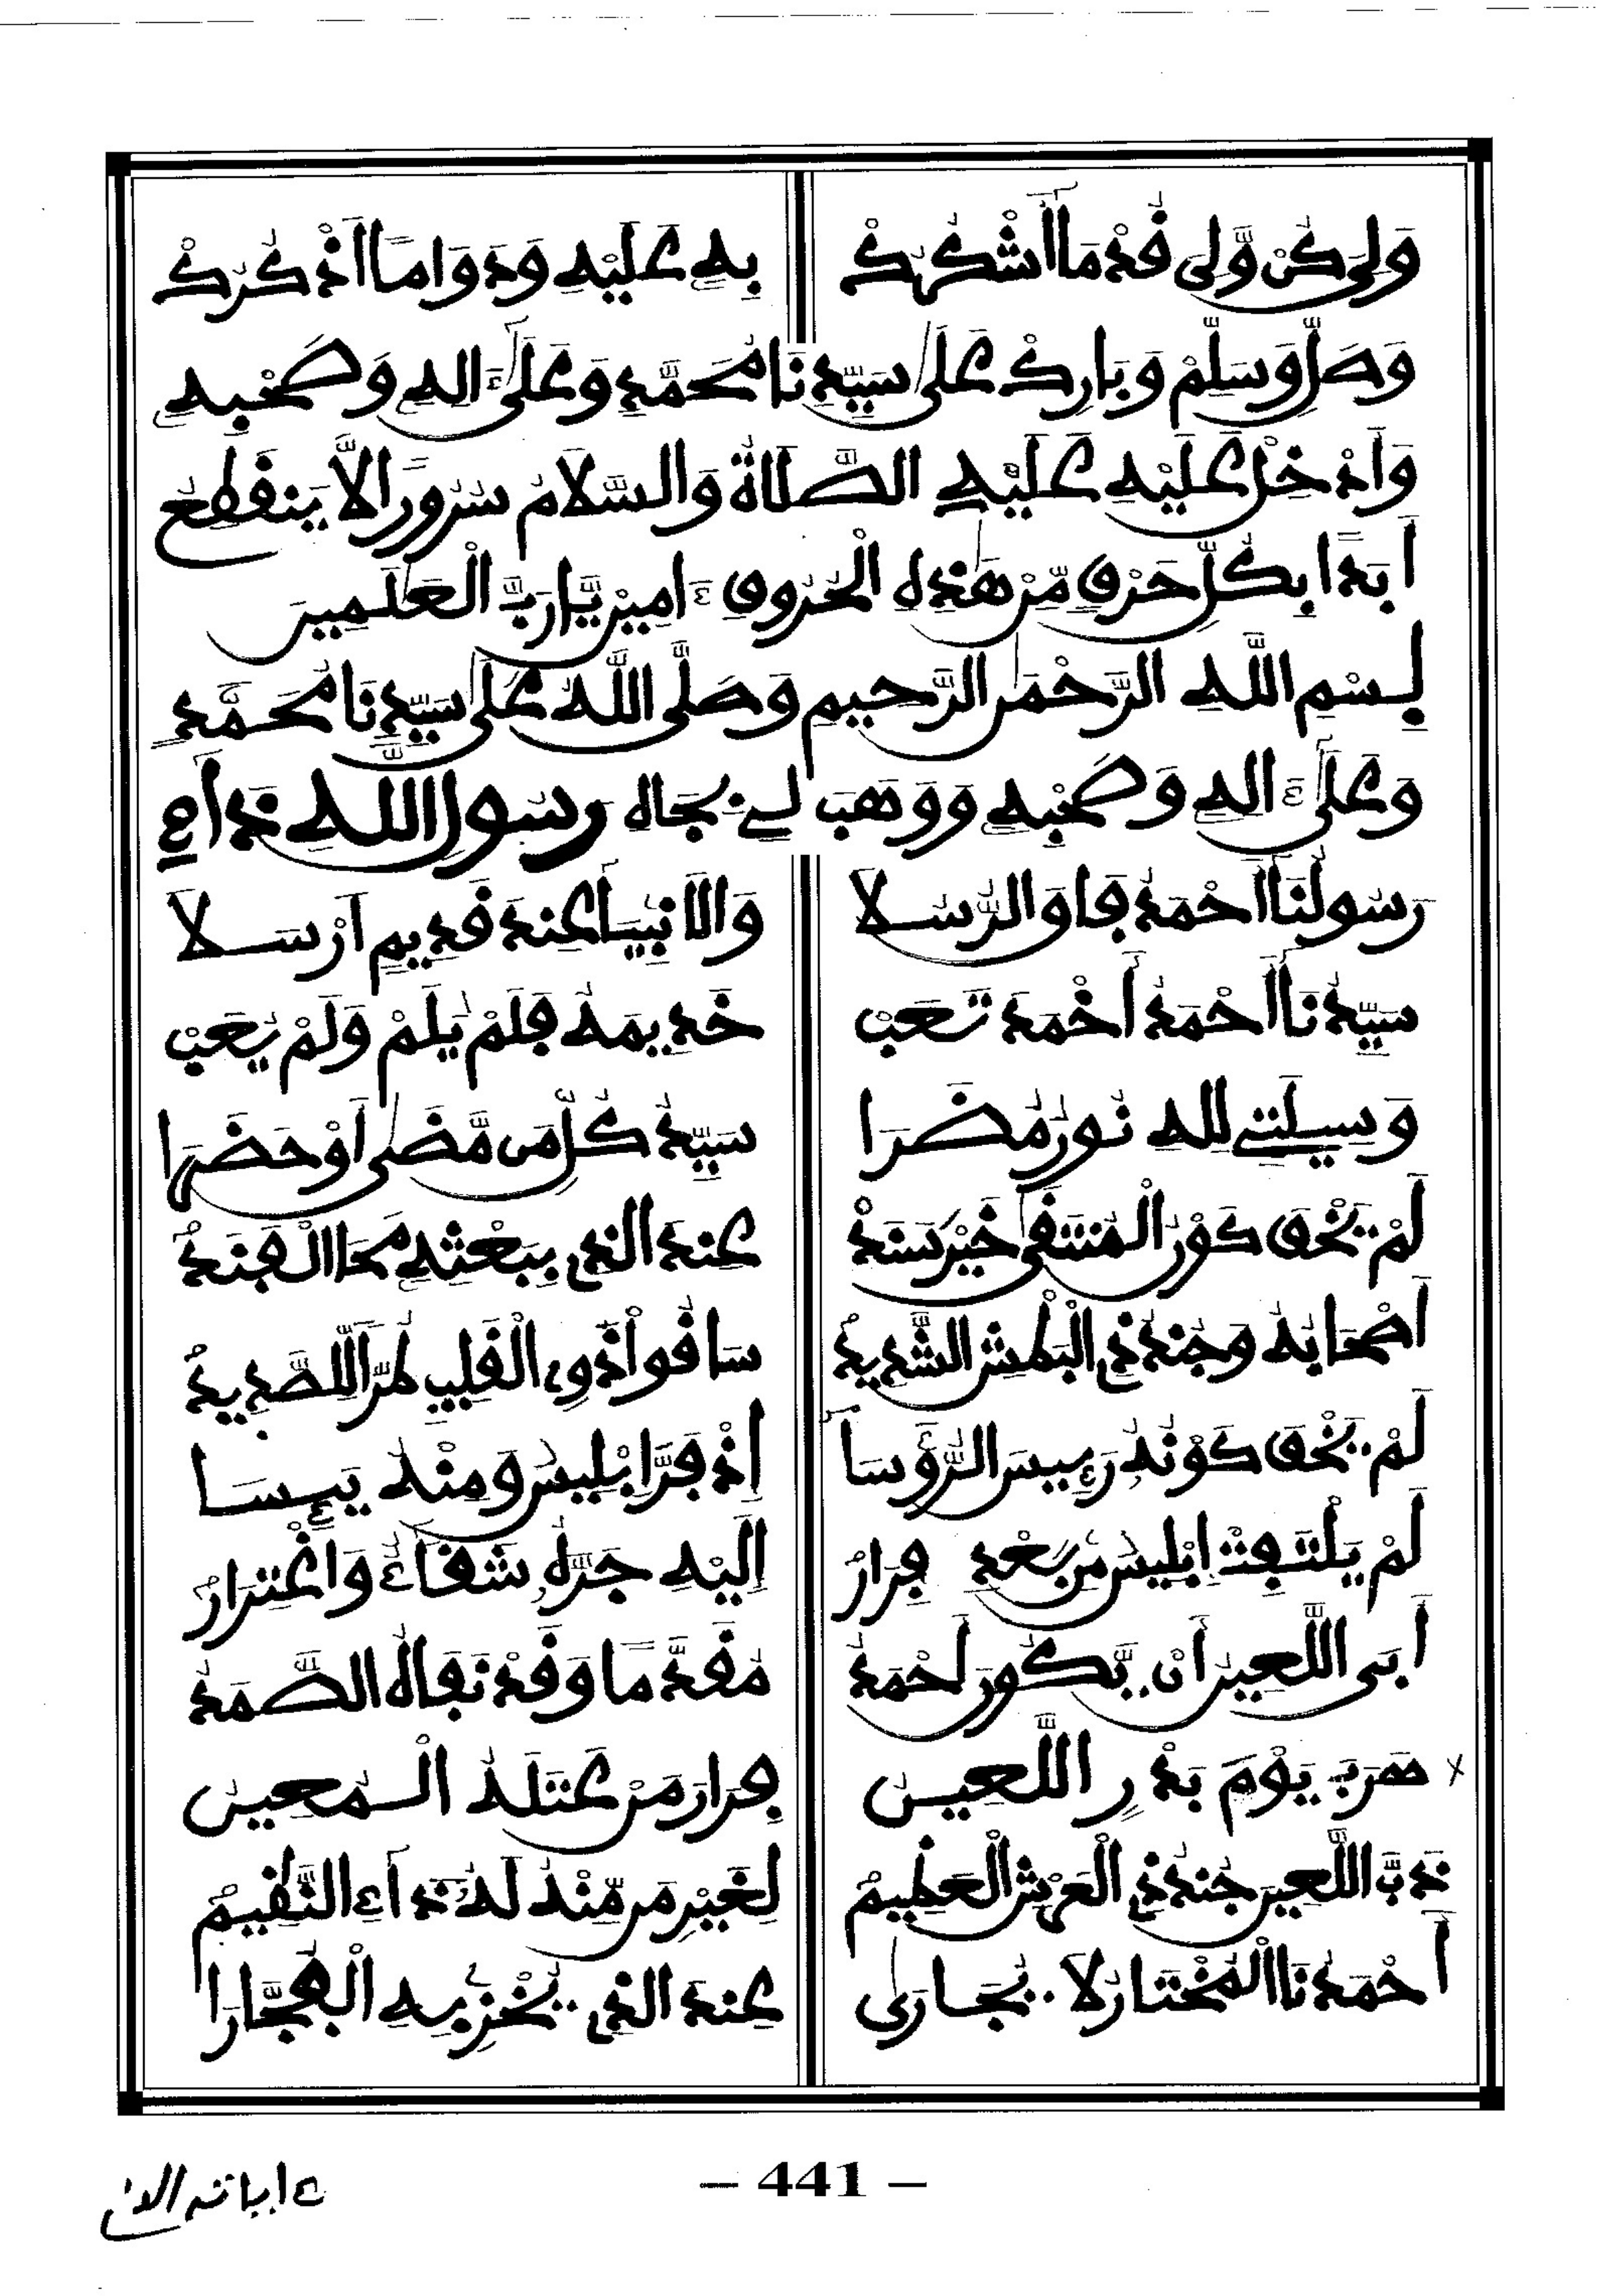 وَلِيَ كُن وَّلِي قُدْ مَآ أَشْكُرُكْ بِهِ عَلَيْهِ وَدَوَامًا أَذْكُرُكْ
وَصَلِّ وَسَلِّمْ وَبَارِكْ عَلَى سَيِّدِنَا مُحَمَّدٍ وَعَلَىٰ ءَالِهِ وَصَحْبِهِ
وَأَدْخِلْ عَلَيْهِ عَلَيْهِ الصَّلَاةُ وَالسَّلَامُ سُرُورًا لَّا يَنقَطِعُ
أَبَدًا بِكُلِّ حَرْفٍ مِّنْ هَٰذِهِ الْحُرُوفِ ءَامِينَ يَا رَبَّ الْعَٰلَمِينَ
بِسْمِ اللَّهِ الرَّحْمَٰنِ الرَّحِيمِ وَصَلَّى اللَّهُ عَلَى سَيِّدِنَا مُحَمَّدٍ
وَعَلَىٰ ءَالِهِ وَصَحْبِهِ وَوَهَبَ لِي بِجَاهِ رَسُولِ اللَّهِ
رَسُولُنَا أَحْمَدُ فَاقَ الرُّسُلَا وَالْأَنْبِيَآ عِندَ قَدِيمٍ أَرْسَلَا
سَيِّدُنَآ أَحْمَدُ أَخْمَدَ تَعَبْ خَدِيمَهُ فَلَمْ يُلَمْ وَلَمْ يُعَبْ
وَسِيلَتِي لِلَّهِ نُورُ مُضَرَا سَيِّدُ كُلِّ مَن مَّضَى أَوْ حَضَرَا
لَمْ يَخْفَ كَوْنُ الْمُنتَقَى خَيْرَ سَنَدْ عِندَ الذِي بِبَعْثِهِ مَحَا الْفَنَدْ
أَصْحَابُهُ وَجُندُ ذِي الْبَطْشِ الشَّدِيدْ سَاقُوا ذَوِي الْقَلِيبِ طُرًّا لِلصَّدِيدْ
لَمْ يَخْفَ كَوْنُهُ رَئِيسَ الرُّؤَسَا إِذْ فَرَّ إِبْلِيسُ وَمِنْهُ يَئِسَا
لَمْ يَلْتَفِتْ إِبْلِيسُ مِن بَعْدِ فِرَارْ إِلَيْهِ جَرَّهُ شَقَآءٌ وَاغْتِرَارْ
أَبَى اللَّعِينُ أَن يَّكُونَ أَحْمَدُ مُقَدَّمًا وَقَدْ نَفَاهُ الصَّمَدُ
هَرَبَ يَوْمَ بَدْرٍ اللَّعِينُ فِرَارَ مَنْ عَتَلَهُ الْمُعِينُ
ذَبَّ اللَّعِينَ جُندُ ذِي الْعَرْشِ الْعَظِيمْ لِغَيْرِ مَن مِّنْهُ لَهُ
أَحْمَدُنَا الْمُخْتَارُ لَا يُجَارَى عِندَ الذِي يُخْزِي بِهِ الْفُجَّارَا
– 441 –